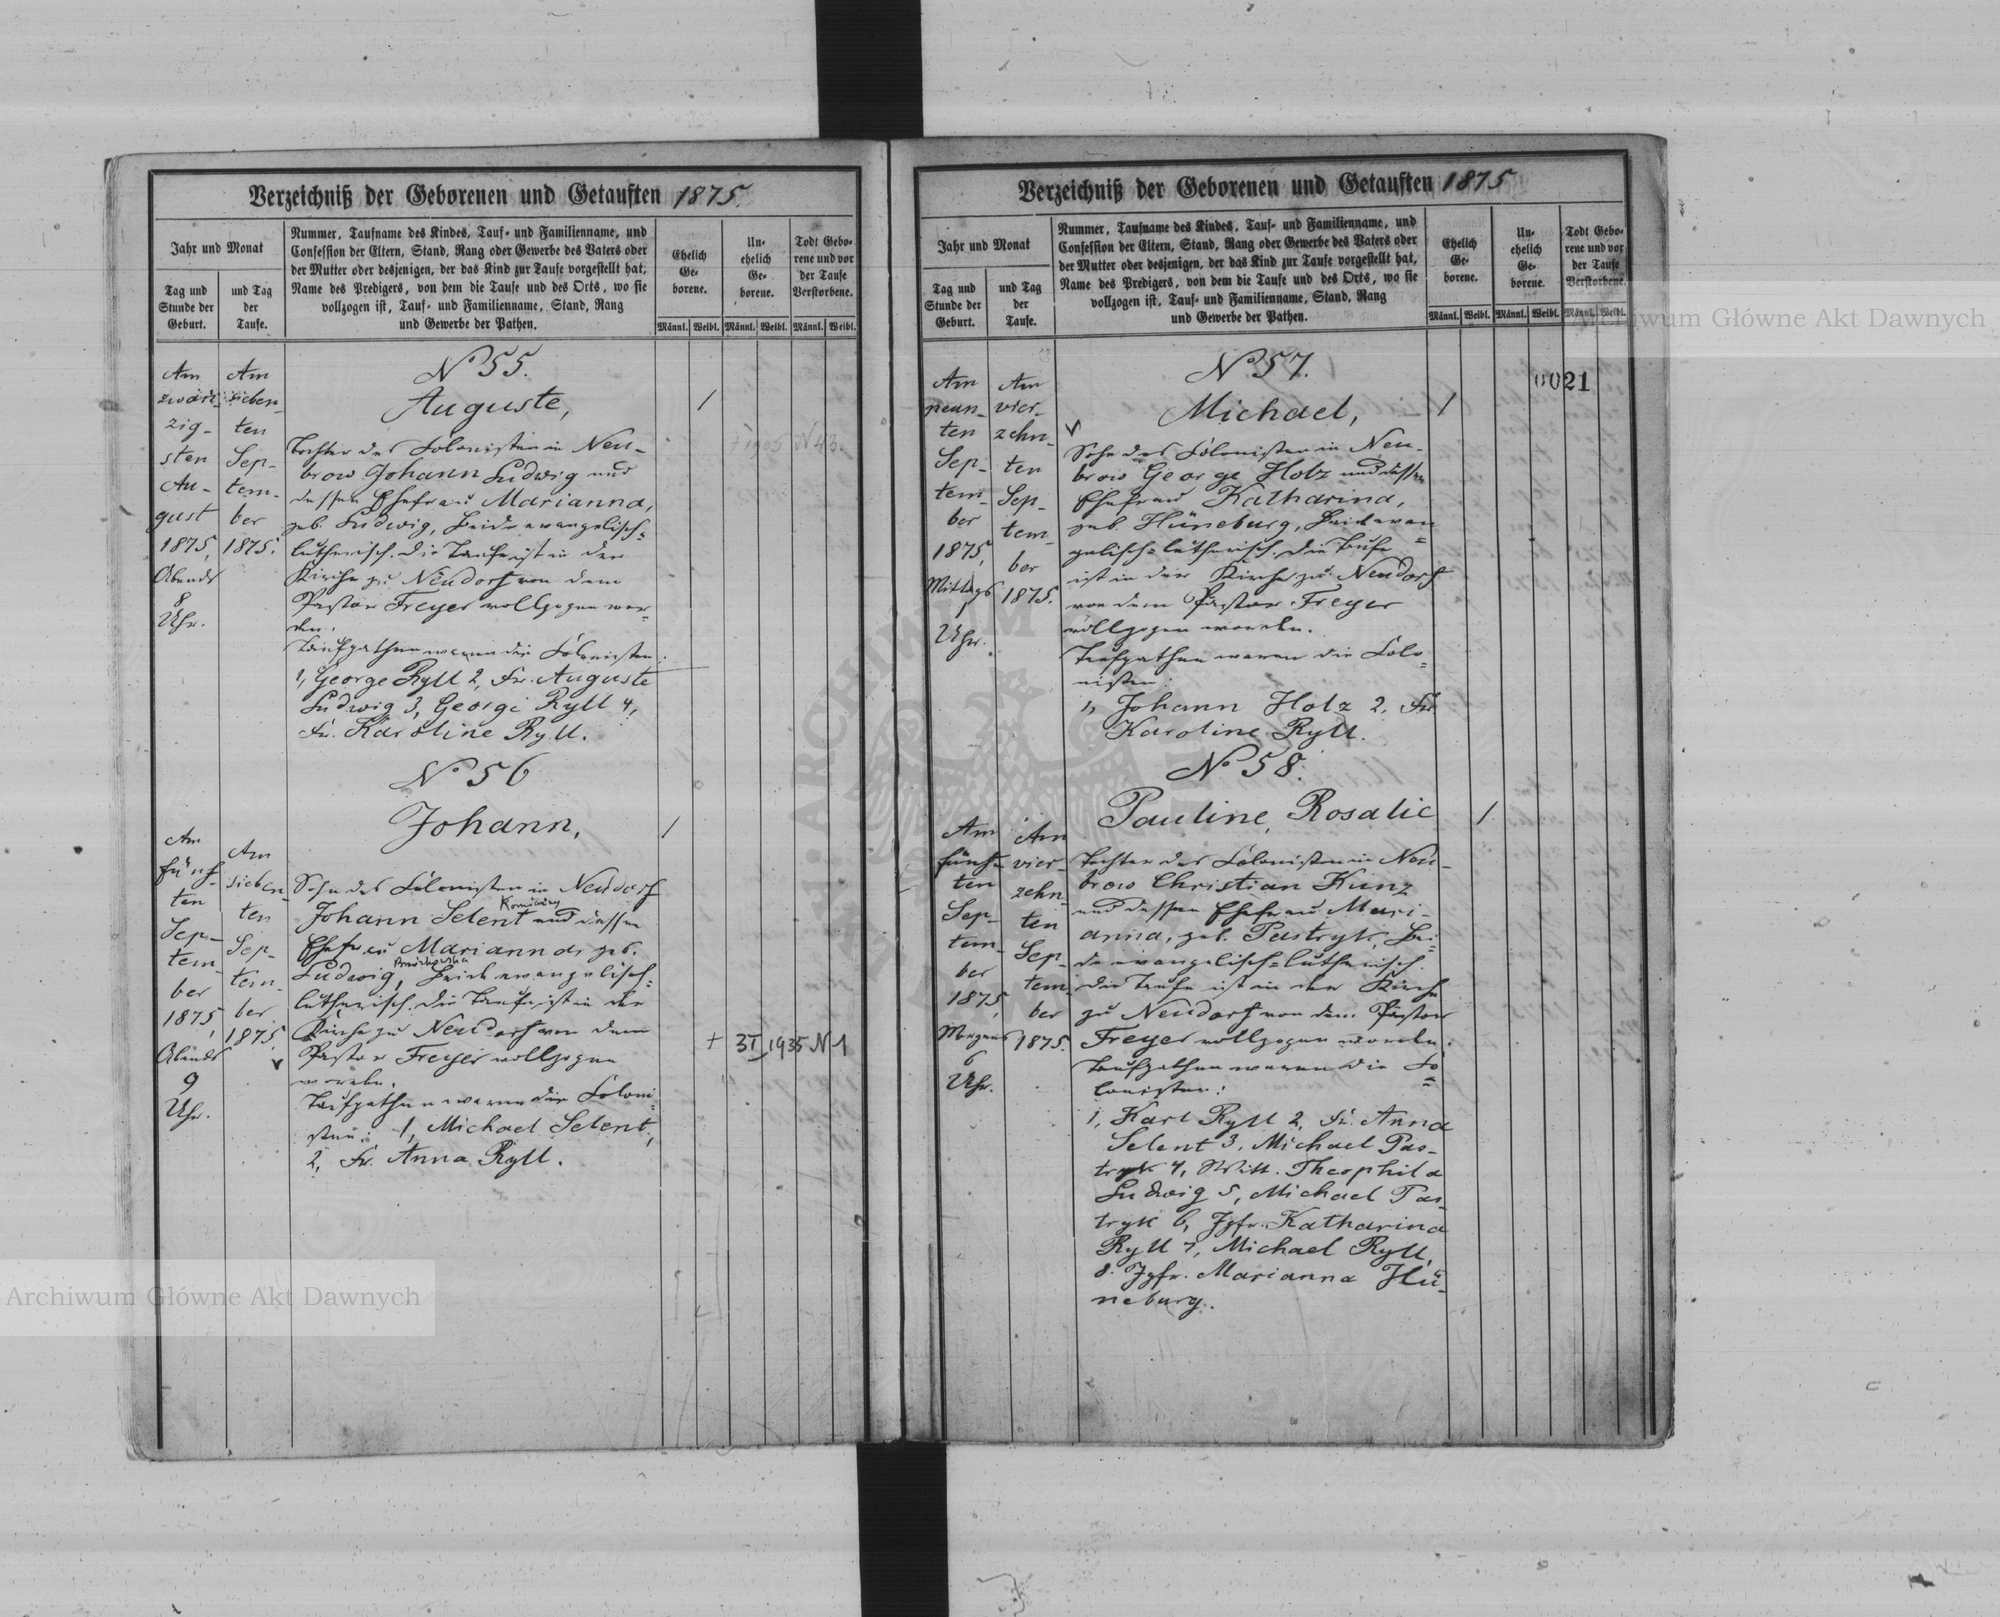 Verzeichniß der Geborenen und Getauften 1875.
Jahr und Monat
Tag und Stunde der Geburt.
und Tag der Taufe.
Nummer, Taufname des Kindes, Tauf- und Familienname, und
Confession der Eltern, Stand, Rang oder Gewerbe des Vaters oder
der Mutter oder desjenigen, der das Kind zur Taufe vorgestellt hat,
Name des Predigers, von dem die Taufe und des Orts, wo sie
vollzogen ist, Tauf- und Familienname, Stand, Rang
und Gewerbe der Pathen.
Ehelich Ge-borene.
Un-ehelich Ge-borene.
Todt Gebo-rene und vor der Taufe Verstorbene.
Männl. Weibl. Männl. Weibl. Männl. Weibl.
Am
zwan-
zig-
sten
Au-
gust
1875,
Abends
8
Uhr.
Am
sieben-
ten
Sep-
tem-
ber
1875.
No 55.
Auguste,
Tochter des Colonisten in Neu-
brow Johann Ludwig und
dessen Ehefrau Marianna,
geb. Ludwig, Beide evangelisch=
lutherisch. Die Taufe ist in der
Kirche zu Neudorf von dem
Pastor Freyer vollzogen wor-
den.
Taufpathen waren die Colonisten:
1, George Ryll 2, Fr. Auguste
Ludwig 3, George Ryll 4,
Fr. Karoline Ryll.
/
+ 1905 N 43.
Am
fünf-
ten
Sep-
tem-
ber
1875,
Abends
9
Uhr.
Am
sieben-
ten
Sep-
tem-
ber
1875.
v
No 56
Johann,
Sohn des Colonisten in Neudorf
Johann Selent und dessen
Ehefrau Marianna geb.
Ludwig, Beide evangelisch=
lutherisch. Die Taufe ist in der
Kirche zu Neudorf von dem
Pastor Freyer vollzogen
worden.
Taufpathen waren die Coloni=
sten: 1, Michael Selent,
2, Fr. Anna Ryll.
/
+ 3 I 1935 N 1
Verzeichniß der Geborenen und Getauften 1875
Jahr und Monat
Tag und Stunde der Geburt.
und Tag der Taufe.
Nummer, Taufname des Kindes, Tauf- und Familienname, und
Confession der Eltern, Stand, Rang oder Gewerbe des Vaters oder
der Mutter oder desjenigen, der das Kind zur Taufe vorgestellt hat,
Name des Predigers, von dem die Taufe und des Orts, wo sie
vollzogen ist, Tauf- und Familienname, Stand, Rang
und Gewerbe der Pathen.
Ehelich Ge-borene.
Un-ehelich Ge-borene.
Todt Gebo-rene und vor der Taufe Verstorbene.
Männl. Weibl. Männl. Weibl. Männl. Weibl.
Archiwum Główne Akt Dawnych
0021
Am
neun-
ten
Sep-
tem-
ber
1875,
Mittags
Uhr.
Am
vier-
zehn-
ten
Sep-
tem-
ber
1875.
No 57.
Michael,
v
Sohn des Colonisten in Neu-
brow George Holz und dessen
Ehefrau Katharina,
geb. Hüneburg, Beide evan=
gelisch=lutherisch. Die Taufe
ist in der Kirche zu Neudorf
von dem Pastor Freyer
vollzogen worden.
Taufpathen waren die Colo=
nisten:
1, Johann Holz 2, Fr.
Karoline Ryll.
/
Am
fünf-
ten
Sep-
tem-
ber
1875,
Morgens
6
Uhr.
Am
vier-
zehn-
ten
Sep-
tem-
ber
1875.
No 58.
Pauline, Rosalie
Tochter des Colonisten in Neu-
brow Christian Kunz
und dessen Ehefrau Mari-
anna, geb. Pastryk, Bei=
de evangelisch=lutherisch.
Die Taufe ist in der Kirche
zu Neudorf von dem Pastor
Freyer vollzogen worden.
Taufpathen waren die Co=
lonisten:
1, Karl Ryll 2, Fr. Anna
Selent 3, Michael Pas-
tryk 4, Witt. Theophila
Ludwig 5, Michael Pas-
tryk 6, Jgfr. Katharina
Ryll 7, Michael Ryll,
8. Jgfr. Marianna Hü-
neburg.
/
Archiwum Główne Akt Dawnych